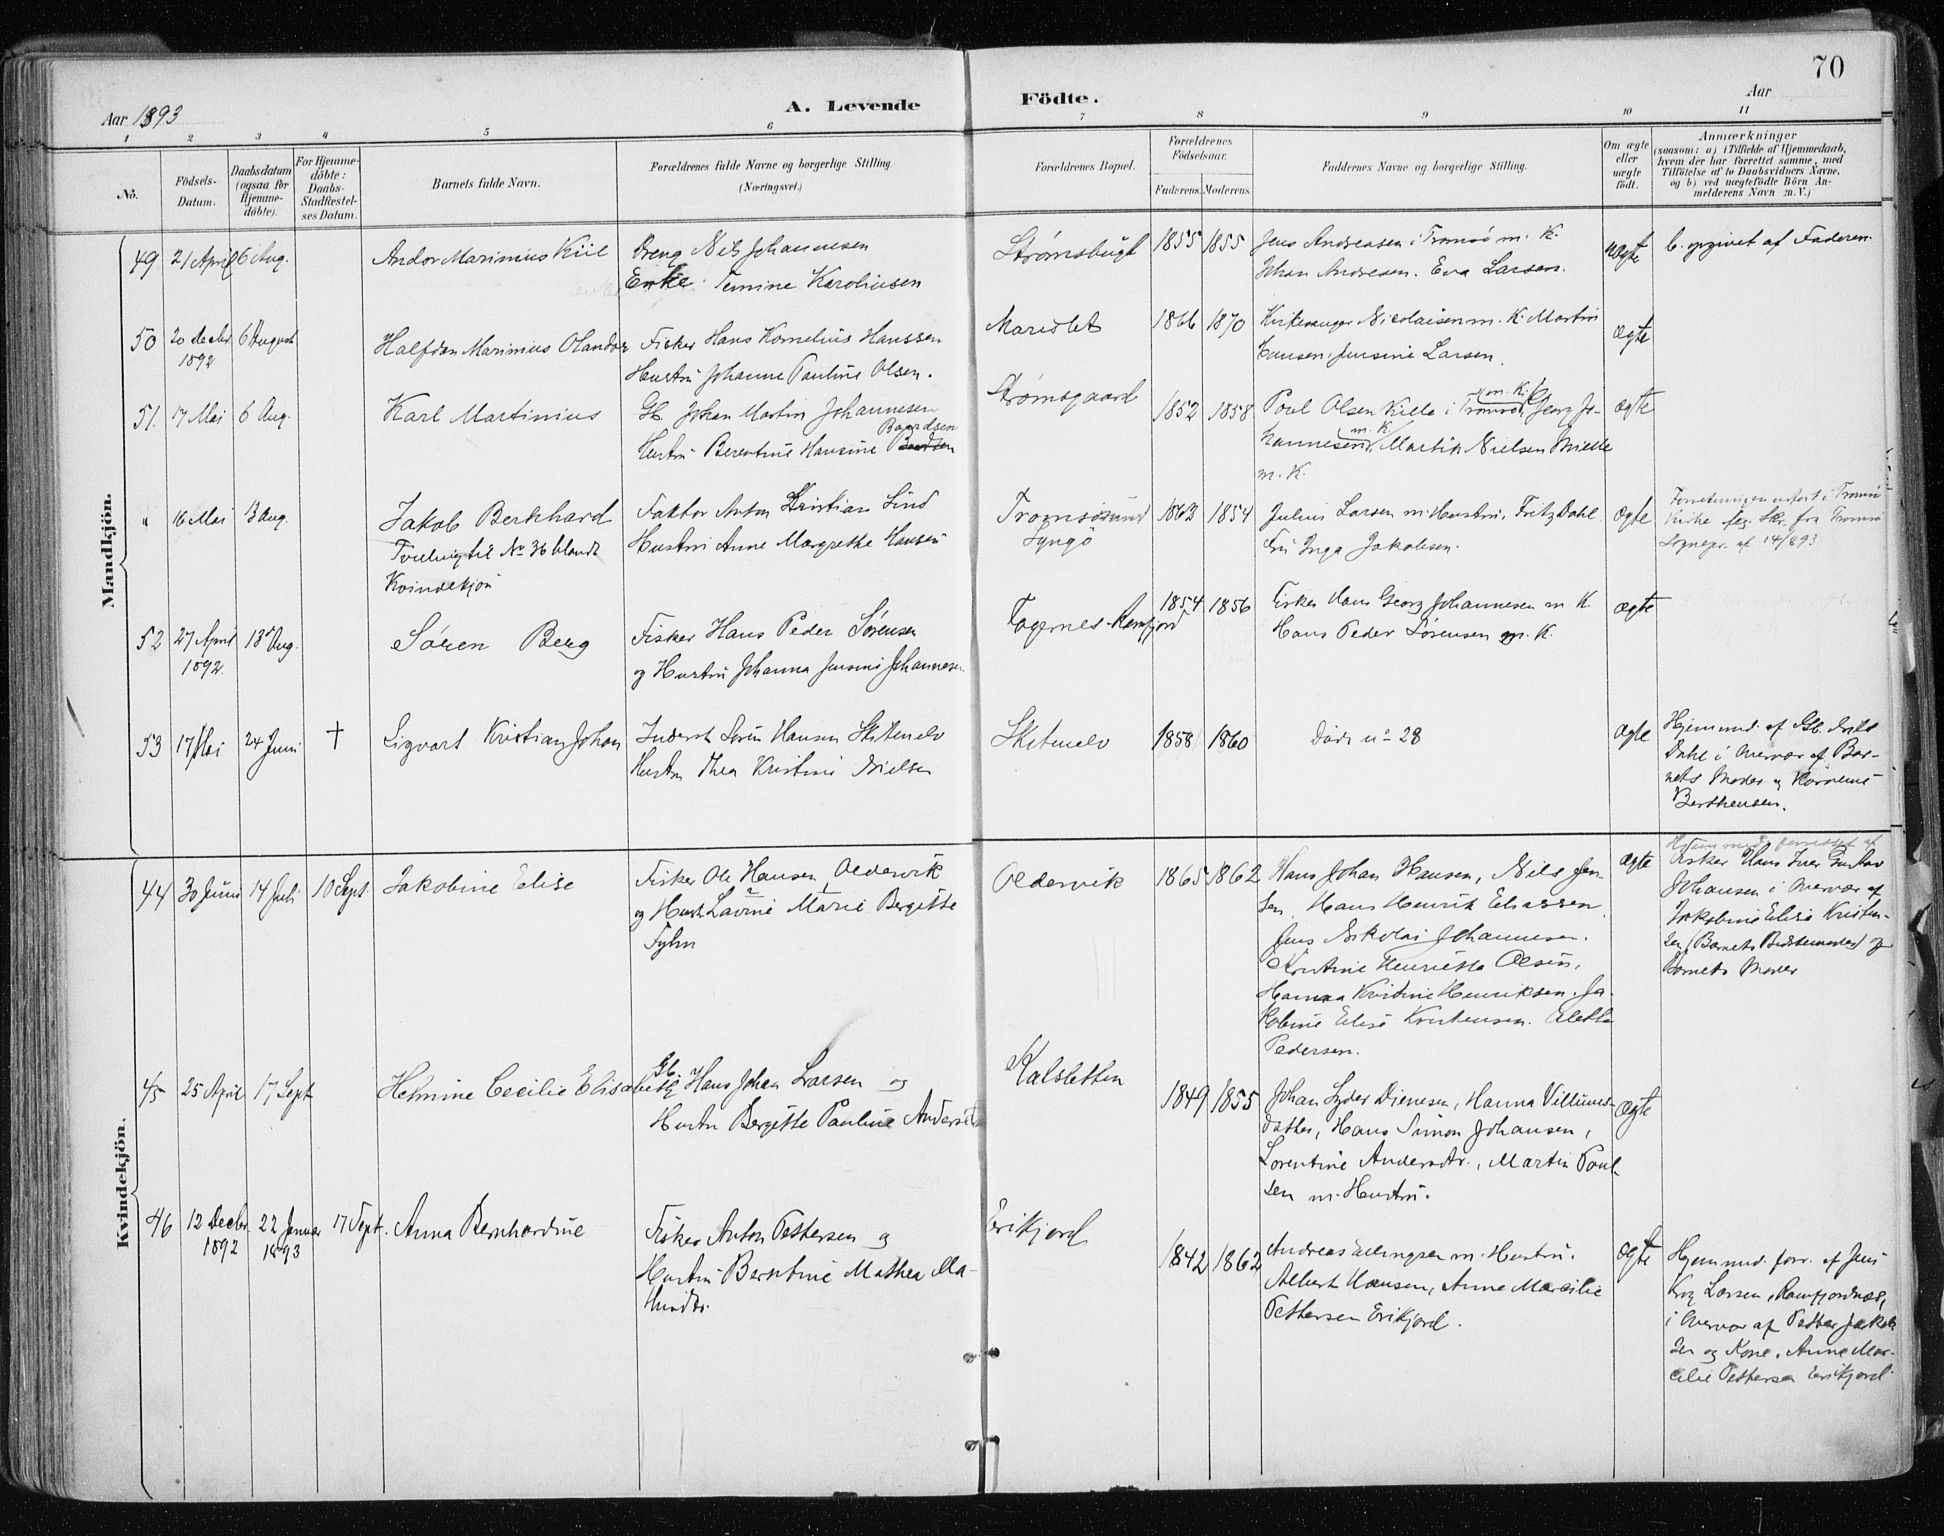 70
Aar 1893
A. Levende Födte.
Aar
1 2 3 4 5 6 7 8 9 10 11
No.
Födsels-
Datum.
Daabsdatum
(ogsaa for
Hjemme-
döbte).
For Hjemme-
döbte:
Daabs-
Stadfæstel-
ses Datum.
Barnets fulde Navn.
Forældrenes fulde Navne og borgerlige Stilling.
(Næringsvei.)
Forældrenes Bopæl.
Forældrenes
Födselsaar.
Faderens. Moderens.
Faddernes Navne og borgerlige Stilling.
Om ægte
eller
uægte
födt.
Anmærkninger
(saasom: a) i Tilfælde af Hjemmedaab,
hvem der har forrettet samme, med
Tilföielse af to Daabsvidners Navne,
og b) ved uægtefödte Börn An-
melderens Navn m. V.)
Mandkjön.
49 21 April 6 Aug.
Andor Marinius Kiil
Dreng Nils Johannesen
Enke Karolinsen
Strømsbugt
1855 1855
Jens Andreasen i Tromsö m. K.
Johan Andresen. Eva Larsen.
uægte
b. opgivet af Faderen.
50 20 Decbr 6 August
1892
Halfdan Marinius Olander
Fisker Hans Kornelius Hanssen
Hustru Johanne Pauline Olsen.
1866 1870
Nicolaisen m. K. Martin
Hansen, Jensine Larsen.
ægte
51. 17 Mai 6 Aug.
Karl Martinius
Gb. Johan Martin Johannesen
Baardsen
Hustru Berentine Hansine
Strømsgaard
1852 1858
m. K.
Poul Olsen Kille i Tromsö, Georg Jo-
m. K.
hannesen, Martin Nielsen
m. K.
ægte
" 16 Mai 13 Aug.
Jakob Bernhard
Tvilling til No 36 blandt
Kvindekjön
Faktor Anton Kristian Lind
Hustru Anne Margrethe Hansen
Tromsösund
Lyngö
1863 1854
Julius Larsen m. Hustru, Fritz Dahl
Fru Inga Jakobsen.
ægte
Forretningen udført i Tromsö
Kirke Skr. fra Tromsö
Sognepr. af 14/893
52 27 April 13 Aug.
1892.
Søren Berg
Fisker Hans Peder Sørensen
og Hustru Johanna Jensine Johannesen
Fagernes-Ramfjord
1854 1856
Fisker Hans Georg Johannesen m. K.
Hans Peder Sørensen m. K.
ægte
53 17 Mai 24 Juni †
Sigvart Kristian Johan
Inderst Søren Hansen Skitnelv
Hustru Thea Kristine Nielsen
Skitnelv
1858 1860
Døde no 28
ægte
Hjemmed. af Gb. Nils
Dahl i Overvær af Bar-
nets Moder og
Berthensen.
Kvindekjön.
44 30 Juni 14 Juli 10 Sept.
Jakobine Elise
Fisker Ole Hansen Oldervik
og Hustr. Lavine Marie Bergitte
Fyhn
Oldervik
1865 1862
Hans Johan Hansen, Nils Jen-
sen, Hans Henrik Eliassen
Jens Nikolai Johannesen.
Kristine Henriette Olsen,
Hanna Kristine Henriksen. Ja-
kobine Elise Kristensen. Aletta
Pedersen.
ægte
Hjemmed. forrettet af
Fisker Hans Iver Gustav
Johansen i Overvær af
Jakobine Elise Kristen-
sen (Barnets Bedstemoder) og
Barnets Moder
45 25 April 17 Sept
Helmine Cecilie Elisabeth
Gb. Hans Johan Larsen og
Hustru Bergitte Pauline Andersdtr
Kalsletten
1849 1855
Johan Lyder Dienesen, Hanna Villums-
datter, Hans Simon Johansen,
Lorentine Andersdtr., Martin Poul-
sen m. Hustru.
ægte
46 12 Decbr. 22 Januar 17 Sept.
1892 1893
Anna Bernhardine
Fisker Anton Pettersen og
Hustru Berntine Mathea Ma-
Erikjord
1842 1862
Andreas Erlingsen m. Hustru.
Albert Hansen, Anne Marcilie
Pettersen Erikjord.
ægte
Hjemmed. forr. af Jens
Krog Larsen, Ramfjordnæs,
i Overvær af Petter Jakob-
sen og Kone, Anne Mar-
cilie Pettersen Erikjord.